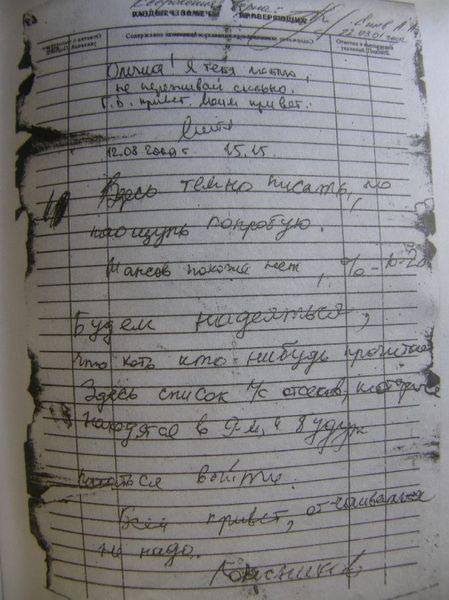 Содержание верно
ПРОВЕРЯЮЩИХ
Олечка! Я тебя люблю,
не переживай сильно.
Г.В. привет. Моим привет.
12.08 2000 г 15.15
Здесь темно писать, но
наощупь попробую.
Шансов похоже нет, %-10-20
Будем надеяться,
что хоть кто-нибудь прочитает
Здесь список л/с отсеков, которые
находятся в 9-м, и будут
пытаться выйти.
Всем привет, отчаиваться
не надо.
Колесников